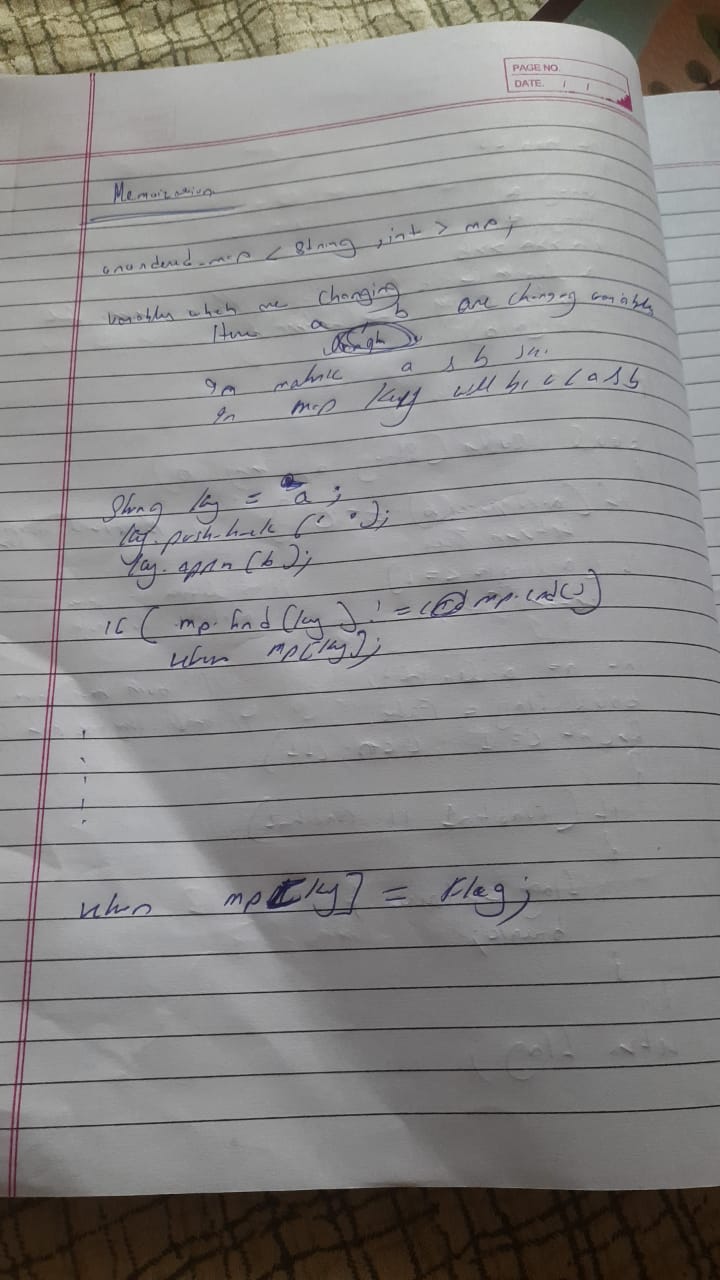 PAGE NO.
DATE. / /
Memoization
unordered_map < string, int > mp;
variables which are changing
Here a b are changing variables
In matrix a b
In map key will be a b
String key = a;
key.push_back (' ');
key.appen (b);
if ( mp.find (key) != mp.end()
return mp[key];
return mp[key] = flag;